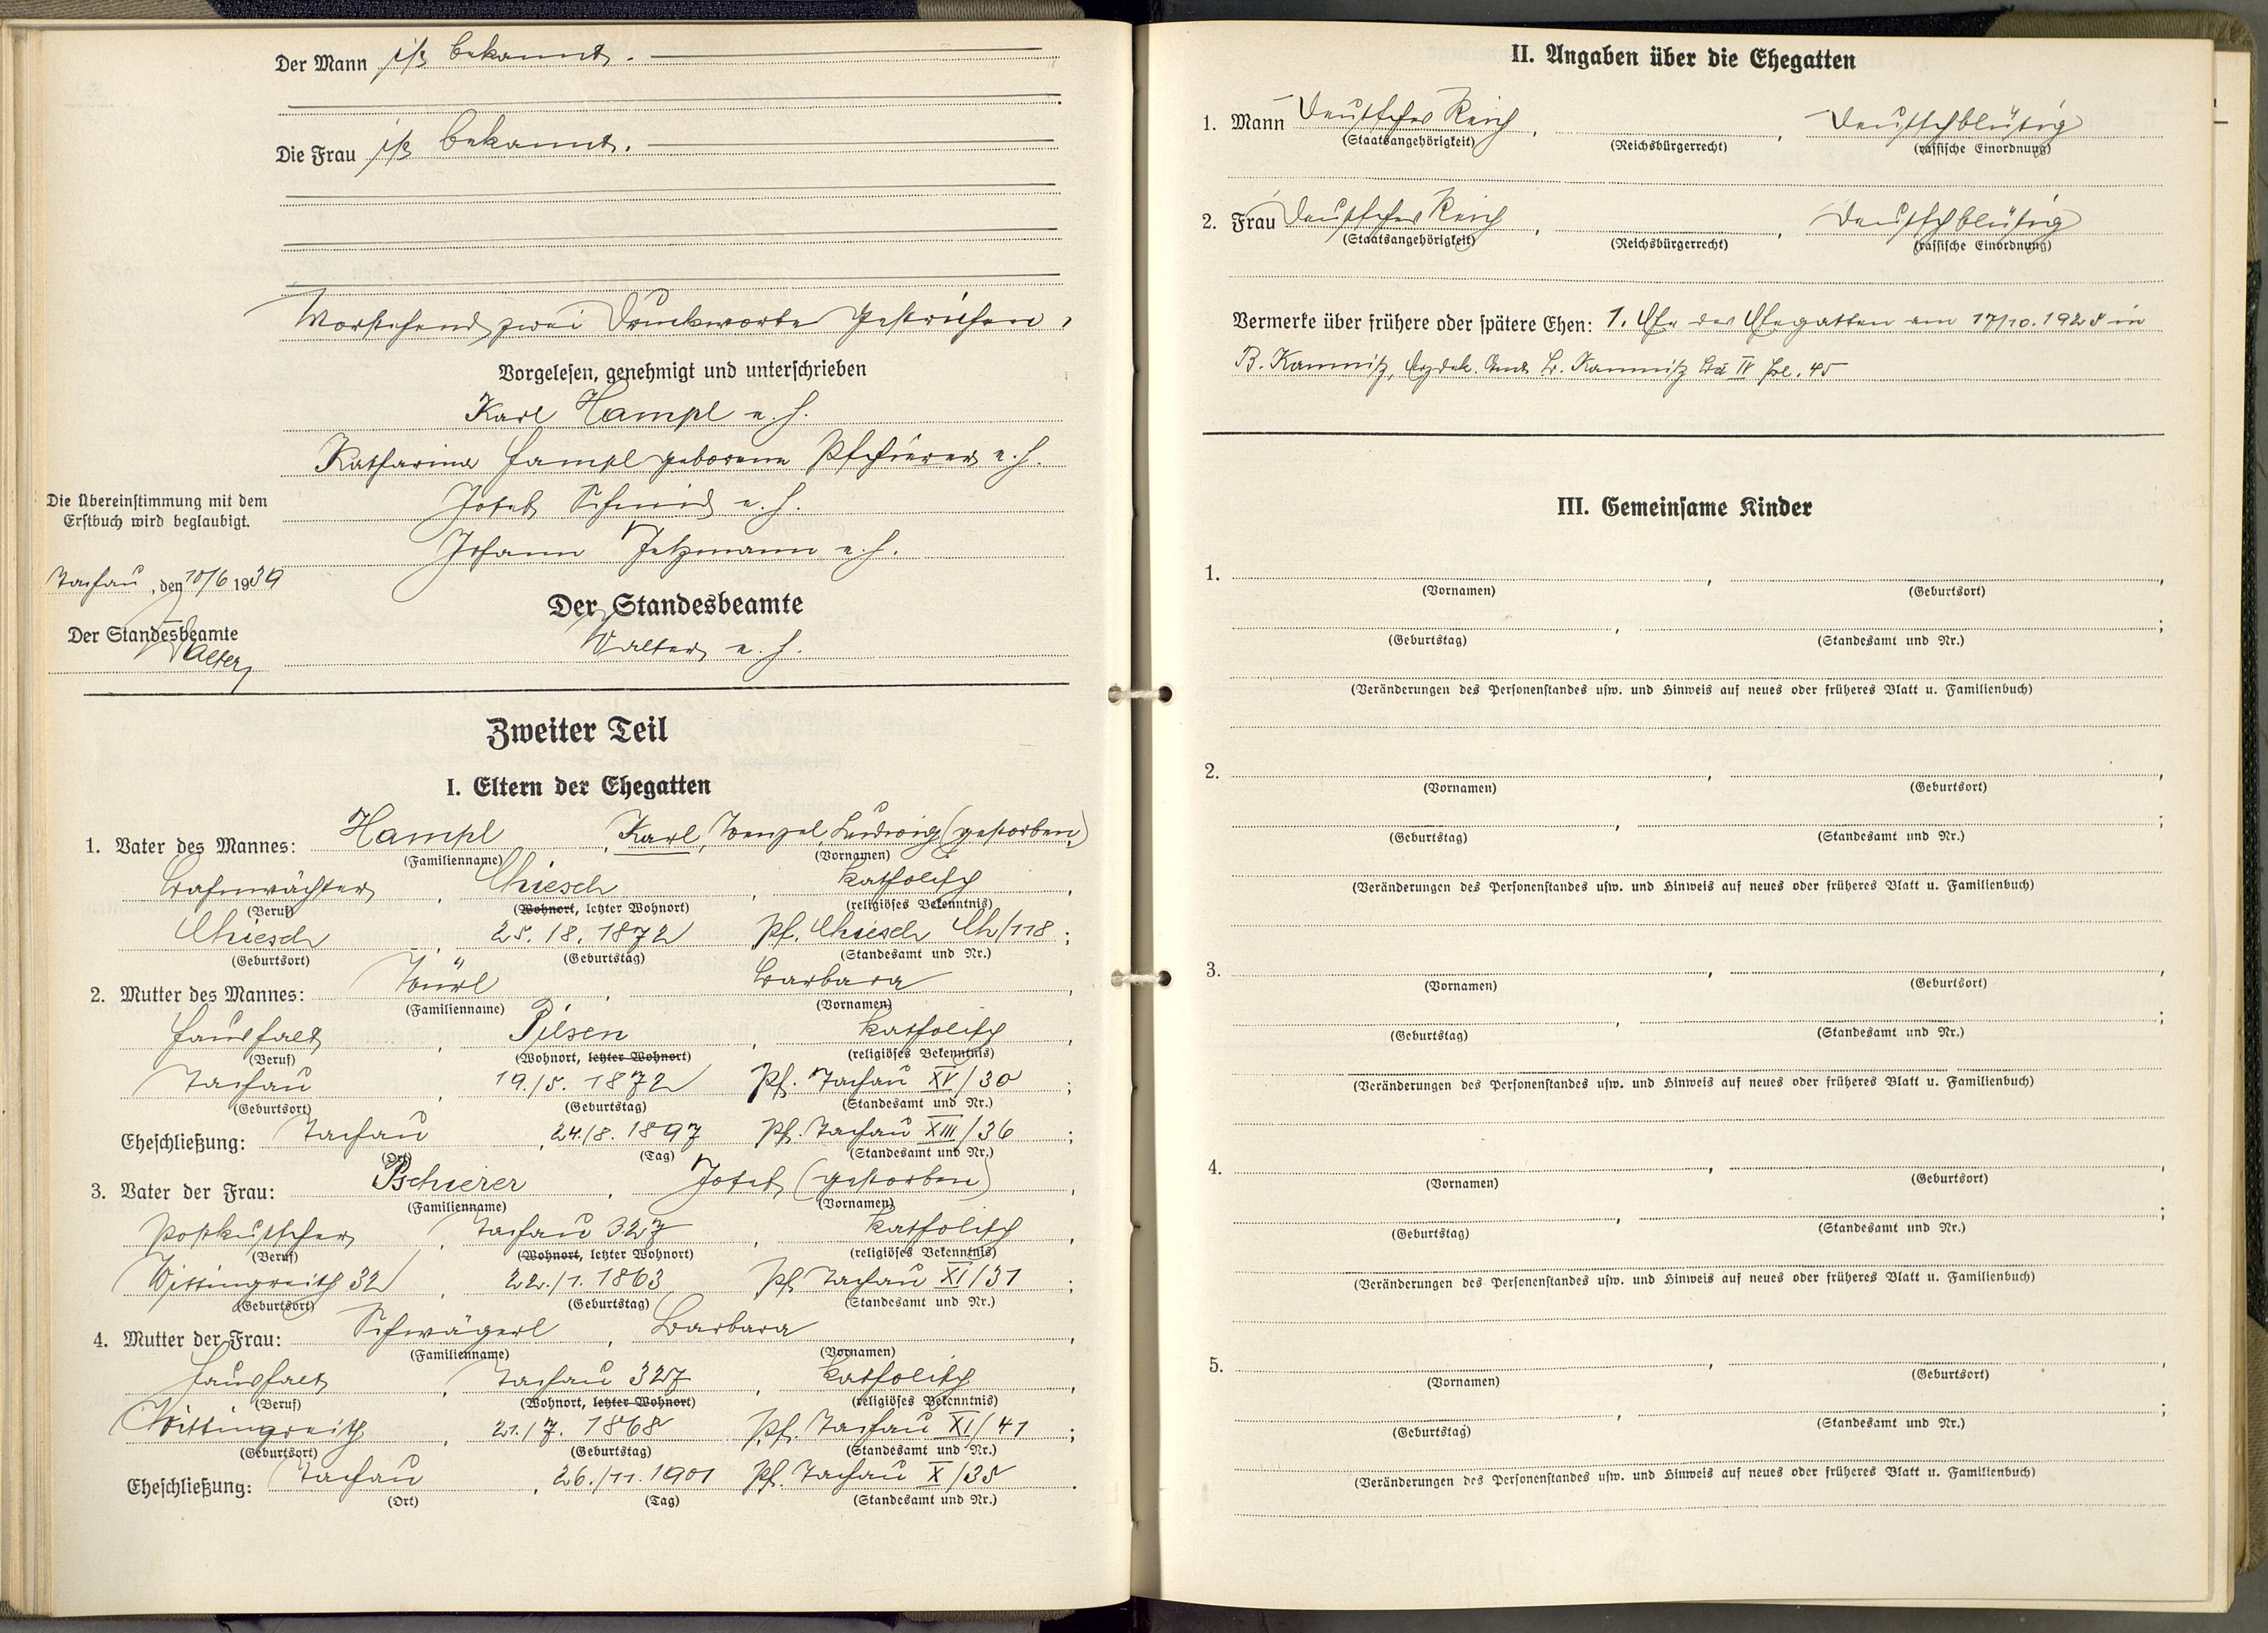 Der Mann ist bekannt.
Die Frau ist bekannt.
Vorstehend zwei Druckworte gestrichen.
Vorgelesen, genehmigt und unterschrieben
Karl Hampl e. h.
Katharina Hampl geborene Pschierer e. h.
Josef Schmid e. h.
Johann e. h.
Die Übereinstimmung mit dem
Erstbuch wird beglaubigt.
Tachau, den 10/6 1939
Der Standesbeamte
Der Standesbeamte
Walter
Walter e. h.
Zweiter Teil
I. Eltern der Ehegatten
1. Vater des Mannes: Hampl, Karl, Wenzel, Ludwig (gestorben)
(Familienname) (Vornamen)
Bahnwächter, Chiesch, katholisch,
(Beruf) (Wohnort, letzter Wohnort) (religiöses Bekenntnis)
Chiesch, 25./8. 1872 Pf. Chiesch Ch/118;
(Geburtsort) (Geburtstag) (Standesamt und Nr.)
2. Mutter des Mannes: Würl, Barbara,
(Familienname) (Vornamen)
Haushalt, Pilsen, katholisch,
(Beruf) (Wohnort, letzter Wohnort) (religiöses Bekenntnis)
Tachau, 19./5. 1872 Pf. Tachau XV/30;
(Geburtsort) (Geburtstag) (Standesamt und Nr.)
Eheschließung: Tachau, 24./8. 1897 Pf. Tachau XIII/36;
(Ort) (Tag) (Standesamt und Nr.)
3. Vater der Frau: Pschierer, Josef (gestorben),
(Familienname) (Vornamen)
Postkutscher, Tachau 327, katholisch,
(Beruf) (Wohnort, letzter Wohnort) (religiöses Bekenntnis)
Wittingreith 32, 22./1. 1863 Pf. Tachau XI/31;
(Geburtsort) (Geburtstag) (Standesamt und Nr.)
4. Mutter der Frau: Schwägerl, Barbara,
(Familienname) (Vornamen)
Haushalt, Tachau 327, katholisch,
(Beruf) (Wohnort, letzter Wohnort) (religiöses Bekenntnis)
Wittingreith, 21./7. 1868 Pf. Tachau XI/41;
(Geburtsort) (Geburtstag) (Standesamt und Nr.)
Eheschließung: Tachau, 26./11. 1901 Pf. Tachau X/35.
(Ort) (Tag) (Standesamt und Nr.)
II. Angaben über die Ehegatten
1. Mann Deutsches Reich, , Deutschblütig
(Staatsangehörigkeit) (Reichsbürgerrecht) (rassische Einordnung)
2. Frau Deutsches Reich, , Deutschblütig
(Staatsangehörigkeit) (Reichsbürgerrecht) (rassische Einordnung)
Vermerke über frühere oder spätere Ehen: 1. Ehe des Ehegatten am 17/10. 1925 in
B. Kamnitz, B. Kamnitz IV Fol. 45
III. Gemeinsame Kinder
1. , ,
(Vornamen) (Geburtsort)
, ;
(Geburtstag) (Standesamt und Nr.)
(Veränderungen des Personenstandes usw. und Hinweis auf neues oder früheres Blatt u. Familienbuch)
2. , ,
(Vornamen) (Geburtsort)
, ;
(Geburtstag) (Standesamt und Nr.)
(Veränderungen des Personenstandes usw. und Hinweis auf neues oder früheres Blatt u. Familienbuch)
3. , ,
(Vornamen) (Geburtsort)
, ;
(Geburtstag) (Standesamt und Nr.)
(Veränderungen des Personenstandes usw. und Hinweis auf neues oder früheres Blatt u. Familienbuch)
4. , ,
(Vornamen) (Geburtsort)
, ;
(Geburtstag) (Standesamt und Nr.)
(Veränderungen des Personenstandes usw. und Hinweis auf neues oder früheres Blatt u. Familienbuch)
5. , ,
(Vornamen) (Geburtsort)
, ;
(Geburtstag) (Standesamt und Nr.)
(Veränderungen des Personenstandes usw. und Hinweis auf neues oder früheres Blatt u. Familienbuch)